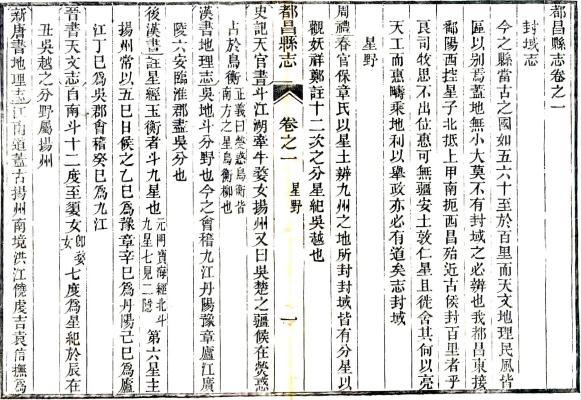 都昌縣志卷之一
封域志
今之縣當古之國如五六十至於百里而天文地理民風皆
區以别焉蓋地無小大莫不有封域之必辨也我都昌東接
鄱陽西控星子北抵上甲南扼西昌殆近古侯封百里者乎
良司牧思不出位惠可無疆安土敦仁星且徙舍其何以亮
天工而惠疇乘地利以舉政亦必有道矣志封域
星野
周禮春官保章氏以星土辨九州之地所封封域皆有分星以
觀妖祥鄭註十二次之分星紀吳越也
都昌縣志 卷之一 星野 一
史記天官書斗江湖牽牛婺女揚州又曰吳楚之疆候在熒惑
占於鳥衡正義曰熒惑鳥衡皆南方之星鳥衡柳也
漢書地理志吳地斗分野也今之會稽九江丹陽豫章廬江廣
陵六安臨淮郡盡吳分也
後漢書註星經玉衡者斗九星也元門寶海經北斗九星七見二隱第六星主
揚州常以五巳日候之乙巳為豫章辛巳為丹陽己巳為廬
江丁巳為吳郡會稽癸巳為九江
晉書天文志自南斗十二度至須女即婺女七度為星紀於辰在
丑吳越之分野屬揚州
新唐書地理志江南道蓋古揚州南境洪江饒虔吉袁信撫為